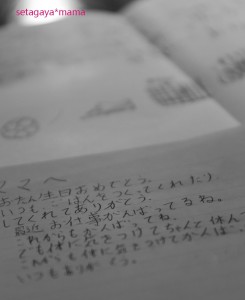 setagaya*mama
ママへ
お誕生日おめでとう。
いつもごはんをつくってくれたり、
してくれてありがとう。
最近お仕事がんばってるね。
これからもがんばってね。
でも体に気をつけてちゃんと休んで
これからも体に気をつけてがんば
いつもありがとう。